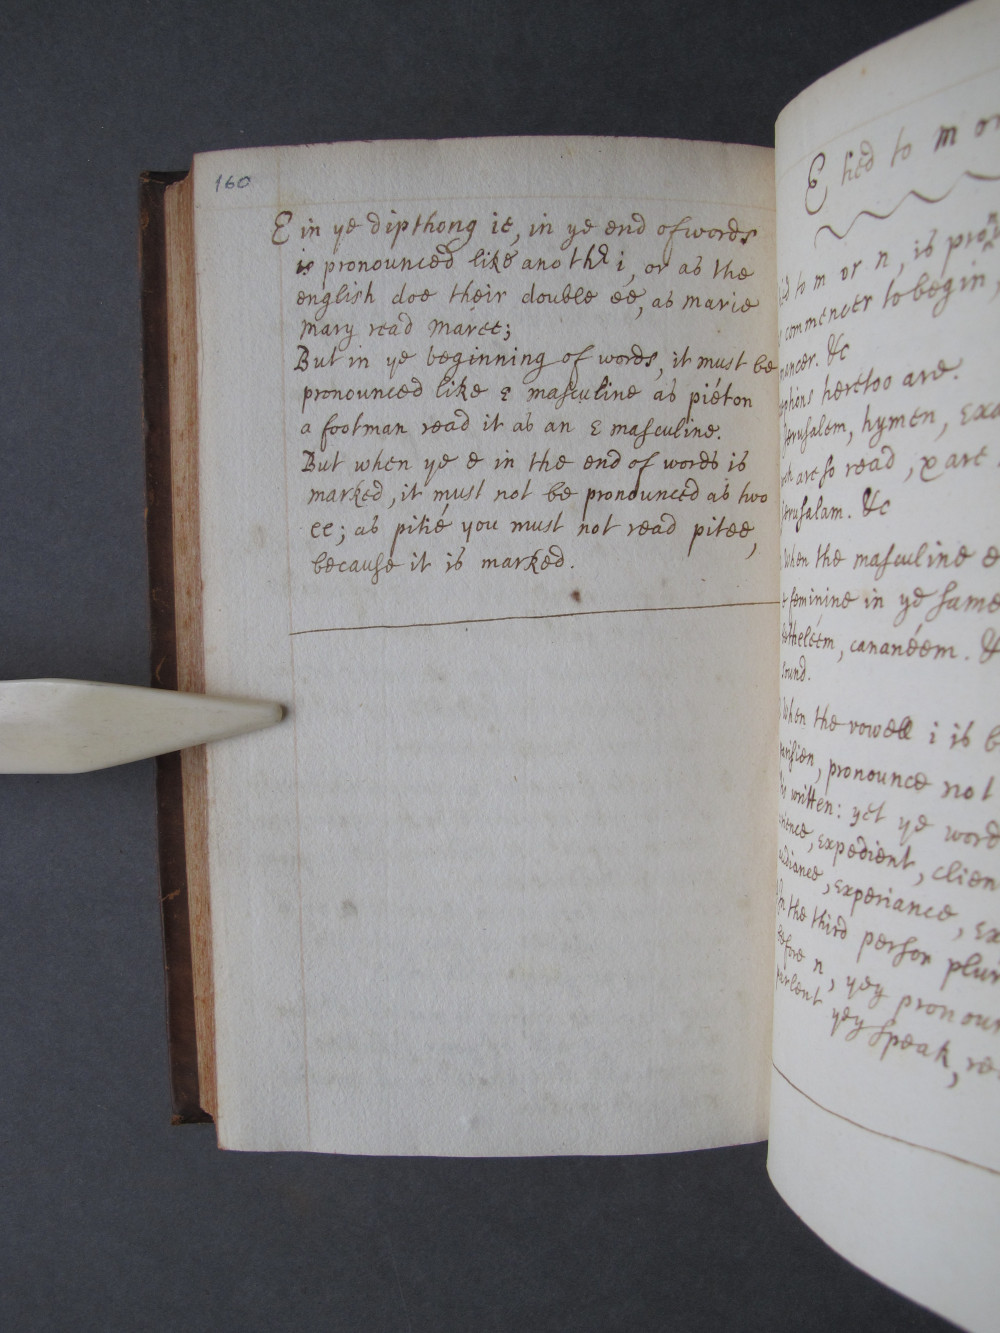 160
E in ye dipthong ie, in ye end of words
is pronounced like another i, or as the
english doe their double ee, as marie
mary read maree;
But in ye beginning of words, it must be
pronounced like e masculine as piéton
a footman read it as an e masculine.
But when ye e in the end of words is
marked, it must not be pronounced as two
ee; as pitié you must not read pitee,
because it is marked.
E, tied to m or
to m or n, is
commencer to begin,
&c
hereto are.
Jerusalem, hymen,
are so read,
Jerusalam. &c
When the masculine e
feminine in ye same
cananéem.
sound.
When the vowell i is
pronounce not
is written: yet ye word
expedient, clien
experiance,
the third person plur
before n, yey pronoun
parlent yey speak,